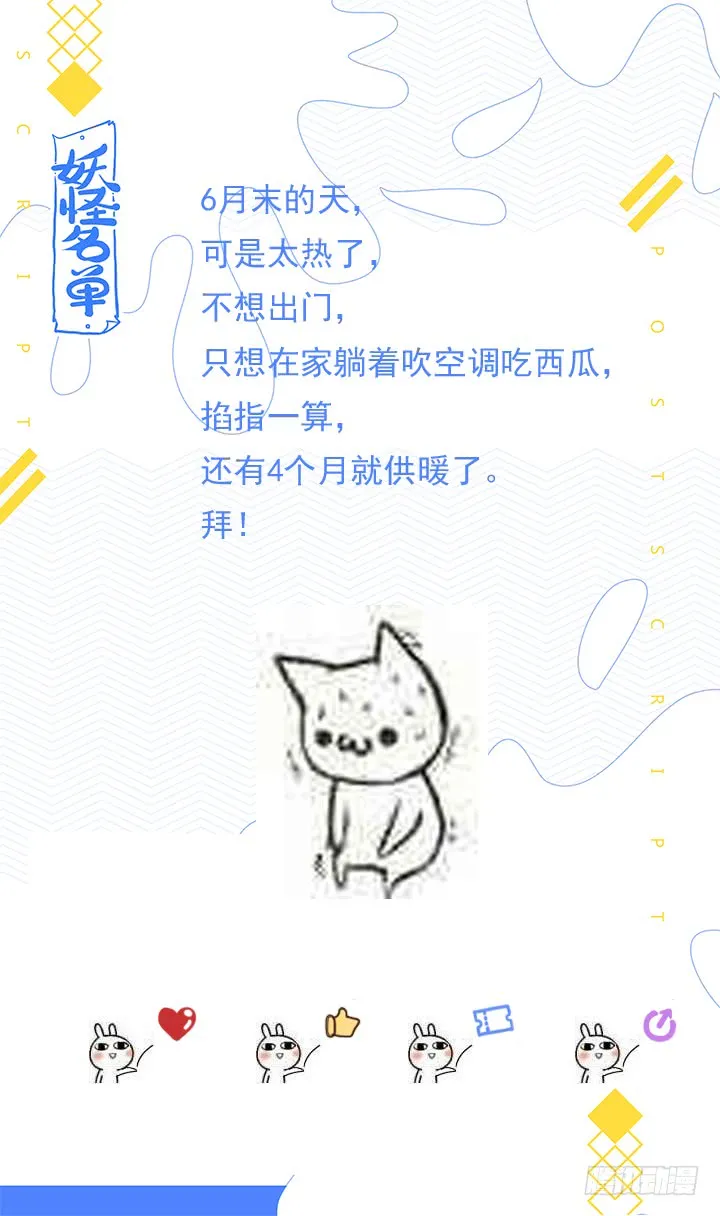 SCRIPT
妖怪名单
6月末的天，
可是太热了，
不想出门，
只想在家躺着吹空调吃西瓜，
掐指一算，
还有4个月就供暖了。
拜！
POSTSCRIPT